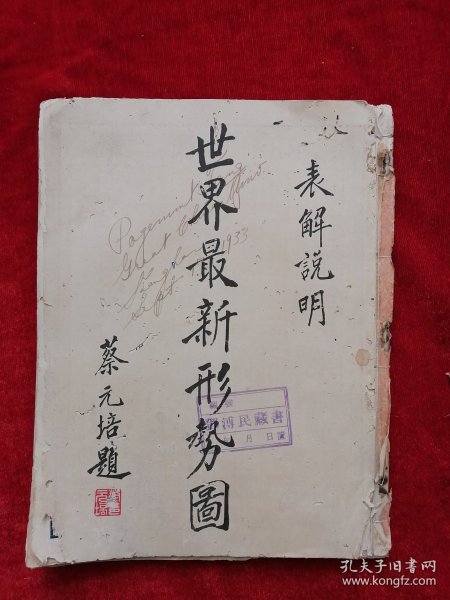 表解說明
世界最新形勢圖
蔡元培題
Great
1933
Sept
溥民藏書
月 日讀
孔夫子旧书网
www.kongfz.com